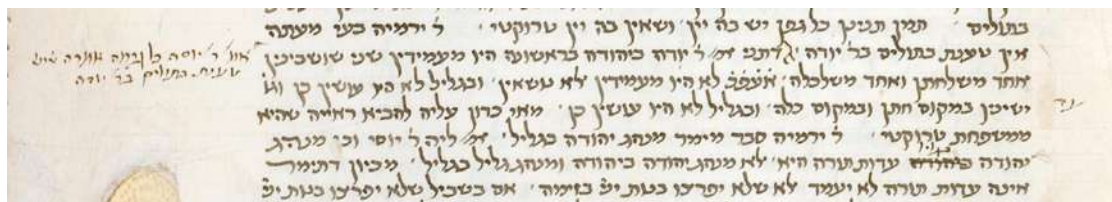 בתולים · תמן תנינן כל גפן יש בה יין · ושאין בה יין טרוקטי · ר׳ ירמיה בעי מעתה
אין טענת בתולים בר׳ יודה · דתני אמ׳ ר׳ יודה ביהודה בראשונה היו מעמידין שני שושבינין
אחד משלחתן ואחד משלכלה · אעפ״כ לא היו מעמידין לא נשאין · ובגליל לא היו עושין כן
ישינין במקום חתן ובמקום כלה · ובגליל לא היו עושין כן · מאי כדון עליה להביא ראייה שהיא
ממשפחת טרוקטי · ר׳ ירמיה סבר מימר מנהג יהודה בגליל · אמ׳ ליה ר׳ יוסי וכן מנהג
יהודה עדות תורה היא · לא מנהג יהודה ביהודה ומנהג גליל בגליל · מכיון דתימר
אינה עדות תורה לא יעמד לא שלא יפרצו בנות יש׳ בזימה · אם בשביל שלא יפרצו בנות יש׳
אמ׳ ר׳ יוסה
טענת בתולים בר׳ יודה